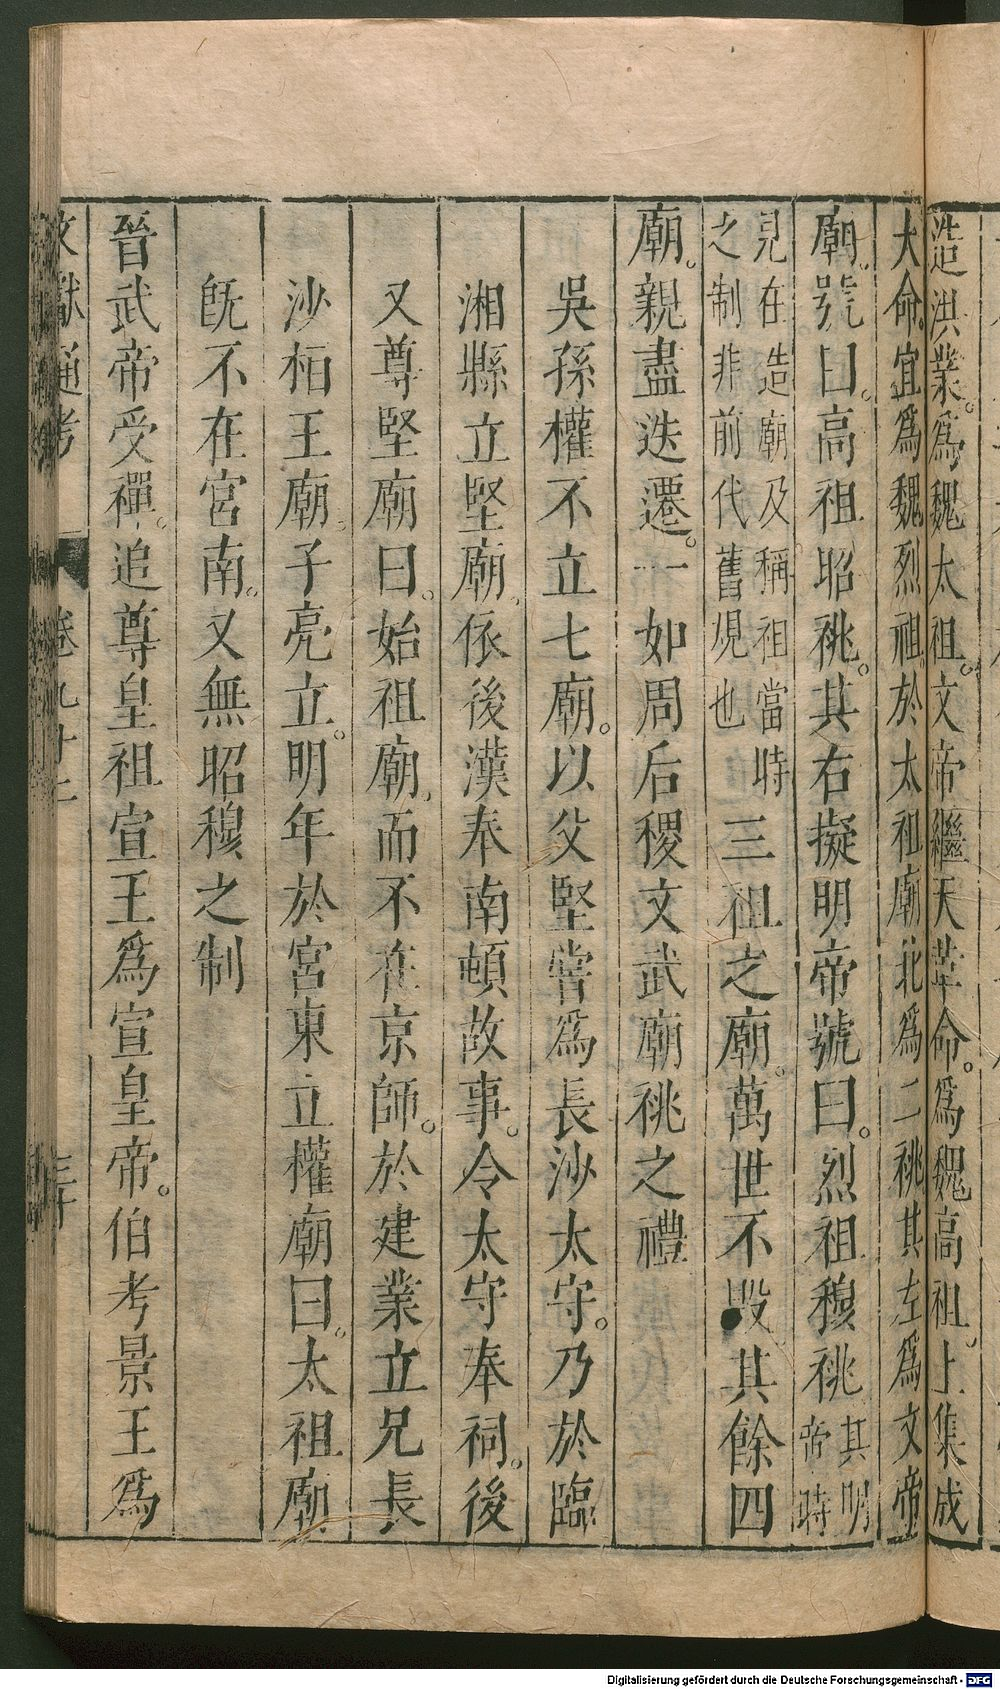 造洪業。爲魏太祖。文帝繼天革命。爲魏高祖。上集成
大命。宜爲魏烈祖。於太祖廟北爲二祧其左爲文帝
廟。號曰。高祖昭祧。其右擬明帝號曰。烈祖穆祧其明帝時
見在造廟及稱祖當時之制非前代舊規也三祖之廟。萬世不毀其餘四
廟。親盡迭遷。一如周后稷文武廟祧之禮
吳孫權不立七廟。以父堅嘗爲長沙太守。乃於臨
湘縣立堅廟。依後漢奉南頓故事。令太守奉祠。後
又尊堅廟曰。始祖廟。而不在京師。於建業立兄長
沙桓王廟。子亮立。明年於宮東立權廟曰。太祖廟
旣不在宮南。又無昭穆之制
晉武帝受禪。追尊皇祖宣王爲宣皇帝。伯考景王爲
文獻通考 卷九十二 三十
Digitalisierung gefördert durch die Deutsche Forschungsgemeinschaft - DFG